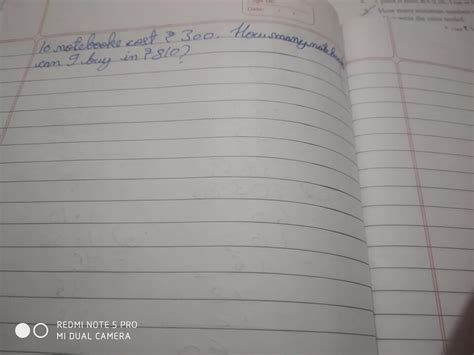 10 notebooks cost ₹300. How many notebooks
can I buy in ₹810?
REDMI NOTE 5 PRO
MI DUAL CAMERA